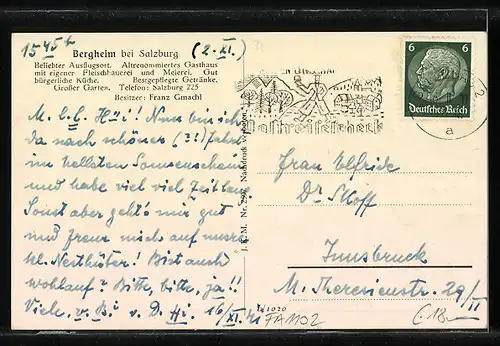 15 45 h
(2. XI.)
Bergheim bei Salzburg
Beliebter Ausflugsort. Altrenommiertes Gasthaus
mit eigener Fleischhauerei und Meierei. Gut
bürgerliche Küche. Bestgepflegte Getränke.
Großer Garten. Telefon: Salzburg 225
Besitzer: Franz Gmachl
M. l. l. Nun bin ich
da nach schöner (?!) Fahrt
im hellsten Sonnenschein
und habe viel viel Zeit.
Sonst aber geht's mir gut
und freue mich auf unsre
kl. Bist auch
wohlauf? Bitte, bitte, ja!!
Viele v. B. v. D. 16/XI. 41
J. M. Nr. Nachdruck verboten.
Postreisescheck
6 6
Deutsches Reich
a
Frau Elfride
Dr
Innsbruck
M. Theresienstr. 29/II
1020
FA 1102